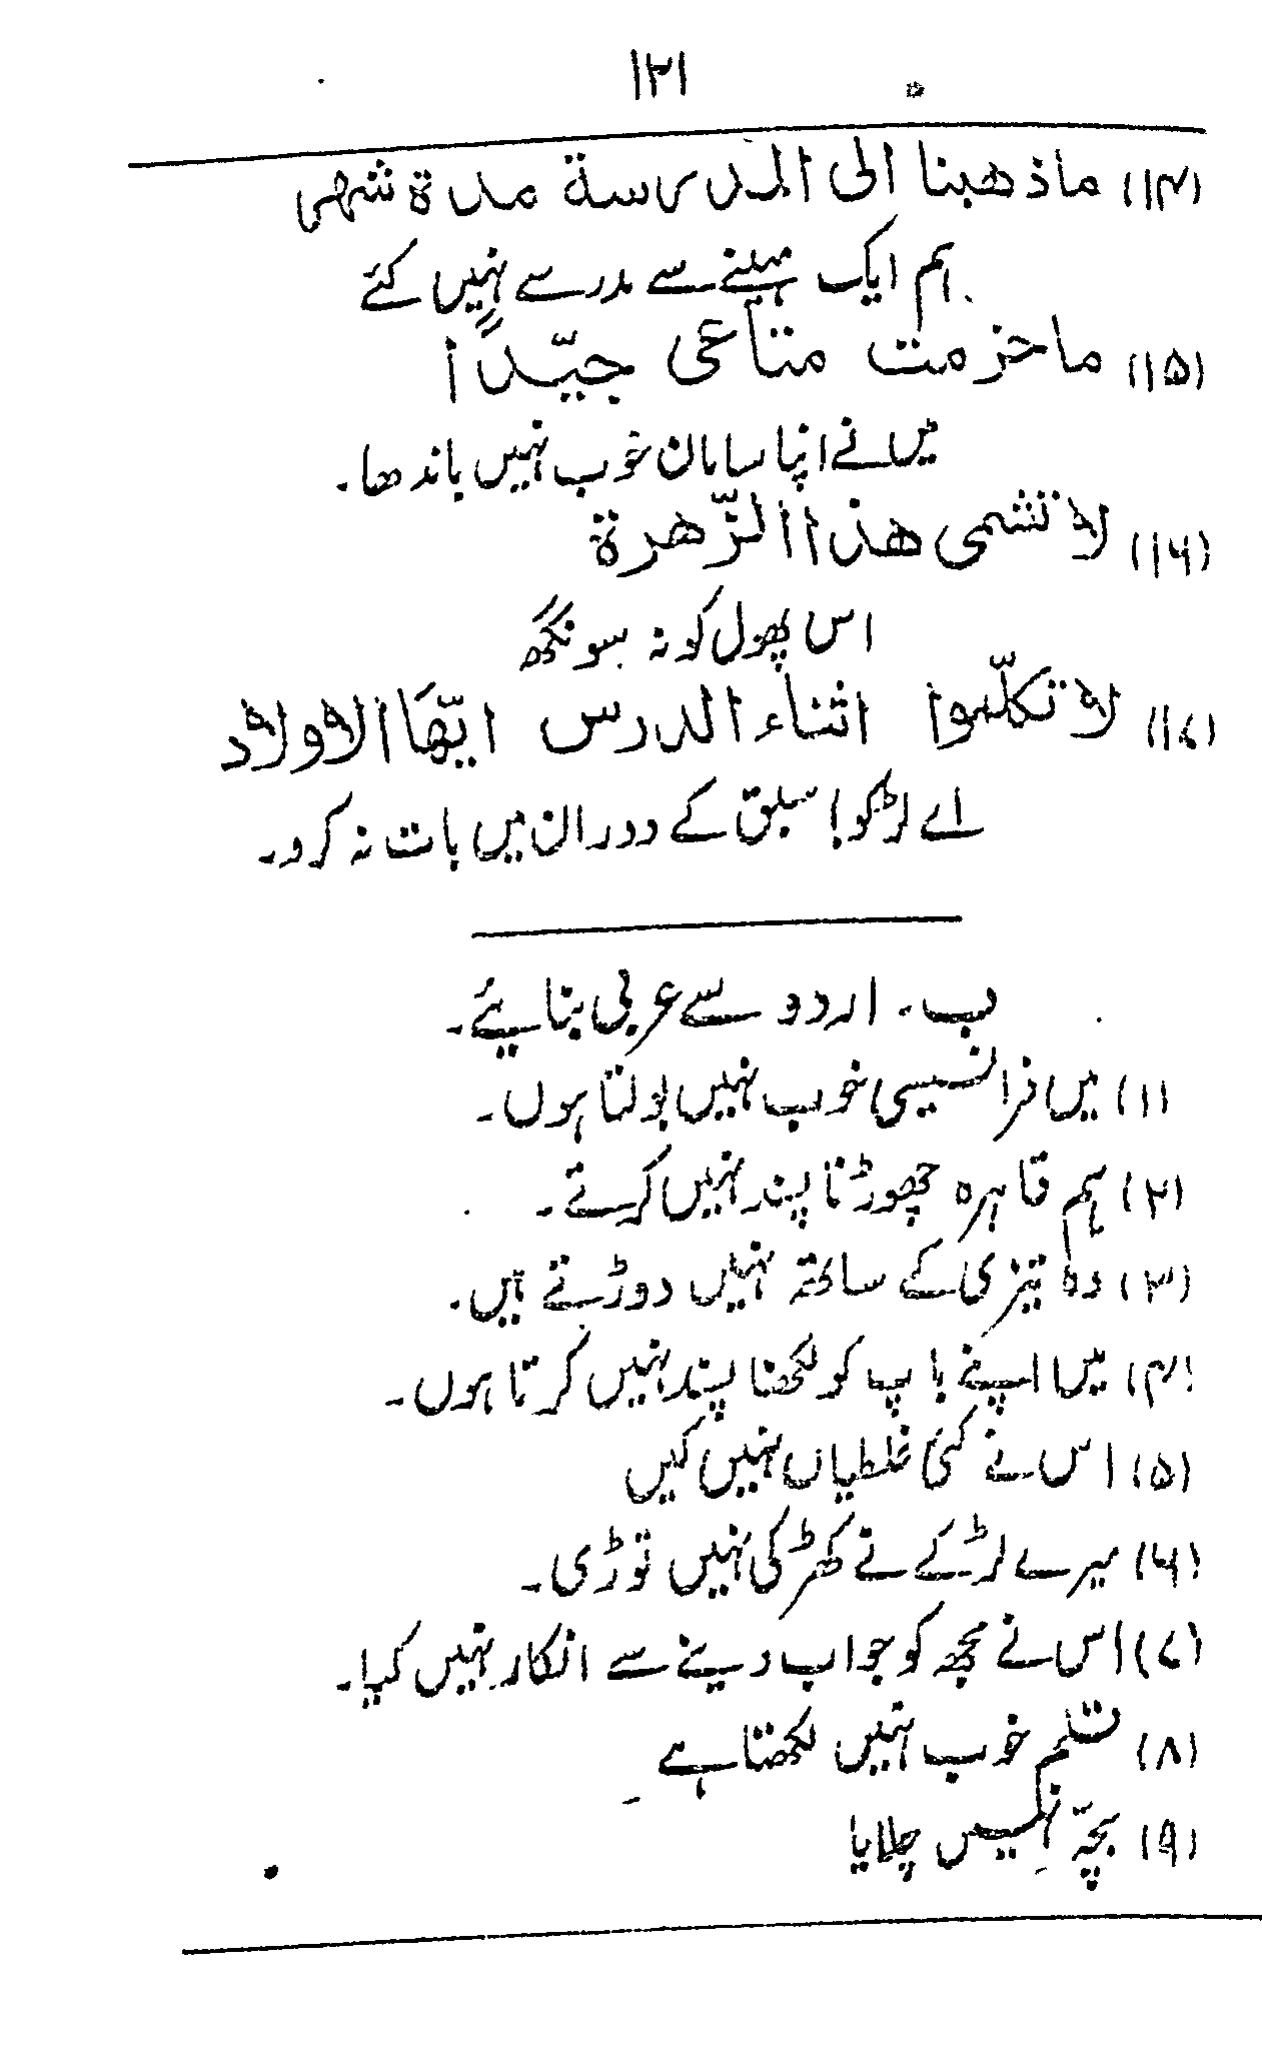 ۱۲۱
(۱۴) ماذھبنا الی المدرسة مدة شھر
ہم ایک مہینے سے مدرسے نہیں گئے
(۱۵) ماحزمت متاعی جیّداً ا
میں نے اپنا سامان خوب نہیں باندھا۔
(۱۶) لا تشمی ھذا الزّھرة
اس پھول کو نہ سونگھ
(۱۷) لا تکلّموا اثناء الدرس ایّھَا الاولاد
اے لڑکو! سبق کے دوران میں بات نہ کرو۔
ب۔ اردو سے عربی بنایئے۔
(۱) میں فرانسیسی خوب نہیں بولتا ہوں۔
(۲) ہم قاہرہ چھوڑنا پسند نہیں کرتے۔
(۳) وہ تیزی کے ساتھ نہیں دوڑتے ہیں۔
(۴) میں اپنے باپ کو لکھنا پسند نہیں کرتا ہوں۔
(۵) اس نے کئی غلطیاں نہیں کیں
(۶) میرے لڑکے نے کھڑکی نہیں توڑی۔
(۷) اس نے مجھ کو جواب دینے سے انکار نہیں کیا۔
(۸) قلم خوب نہیں لکھتا ہے۔
(۹) بچّہ نہیں چلایا